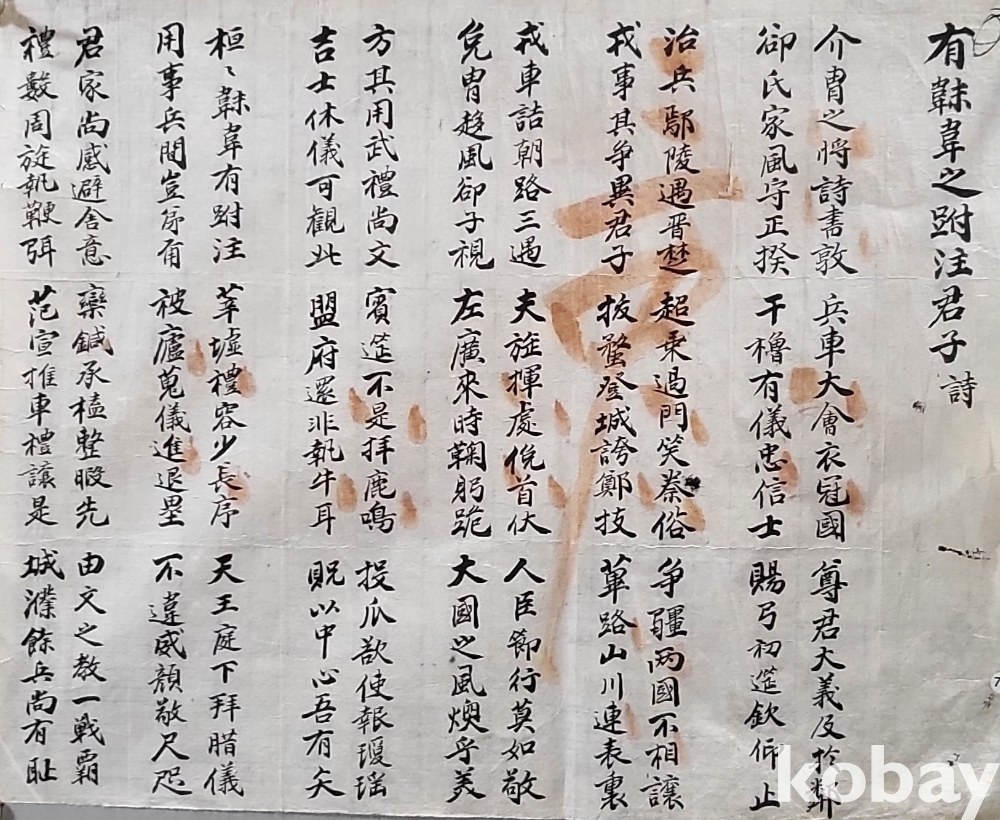 有韎韋之跗注君子 詩
介冑之將詩書敦 兵車大會衣冠國 尊君大義及於鄰
郤氏家風守正揆 干櫓有儀忠信士 賜弓初筵欽仰止
治兵鄢陵遇晋楚 超乘過門笑秦俗 爭疆兩國不相讓
戎事其爭異君子 拔蝥登城誇鄭技 蓽路山川連表裏
戎車詰朝路三遇 夫旌揮處俛首伏 人臣節行莫如敬
免冑趍風郤子視 左廣來時鞠躬跪 大國之風煥乎美
方其用武禮尚文 賓筵不是拜鹿鳴 投瓜欲使報瓊瑤
吉士休儀可觀此 盟府還非執牛耳 貺以中心吾有矢
桓〻韎韋有跗注 莘墟禮容少長序 天王庭下拜腊儀
用事兵間豈 被廬蒐儀進退壘 不違威顔敬尺咫
君家尚感避舍意 欒鍼承榼整暇先 由文之教一戰霸
禮數周旋執鞭弭 范宣推車禮讓是 城濮餘兵尚有耻
kobay